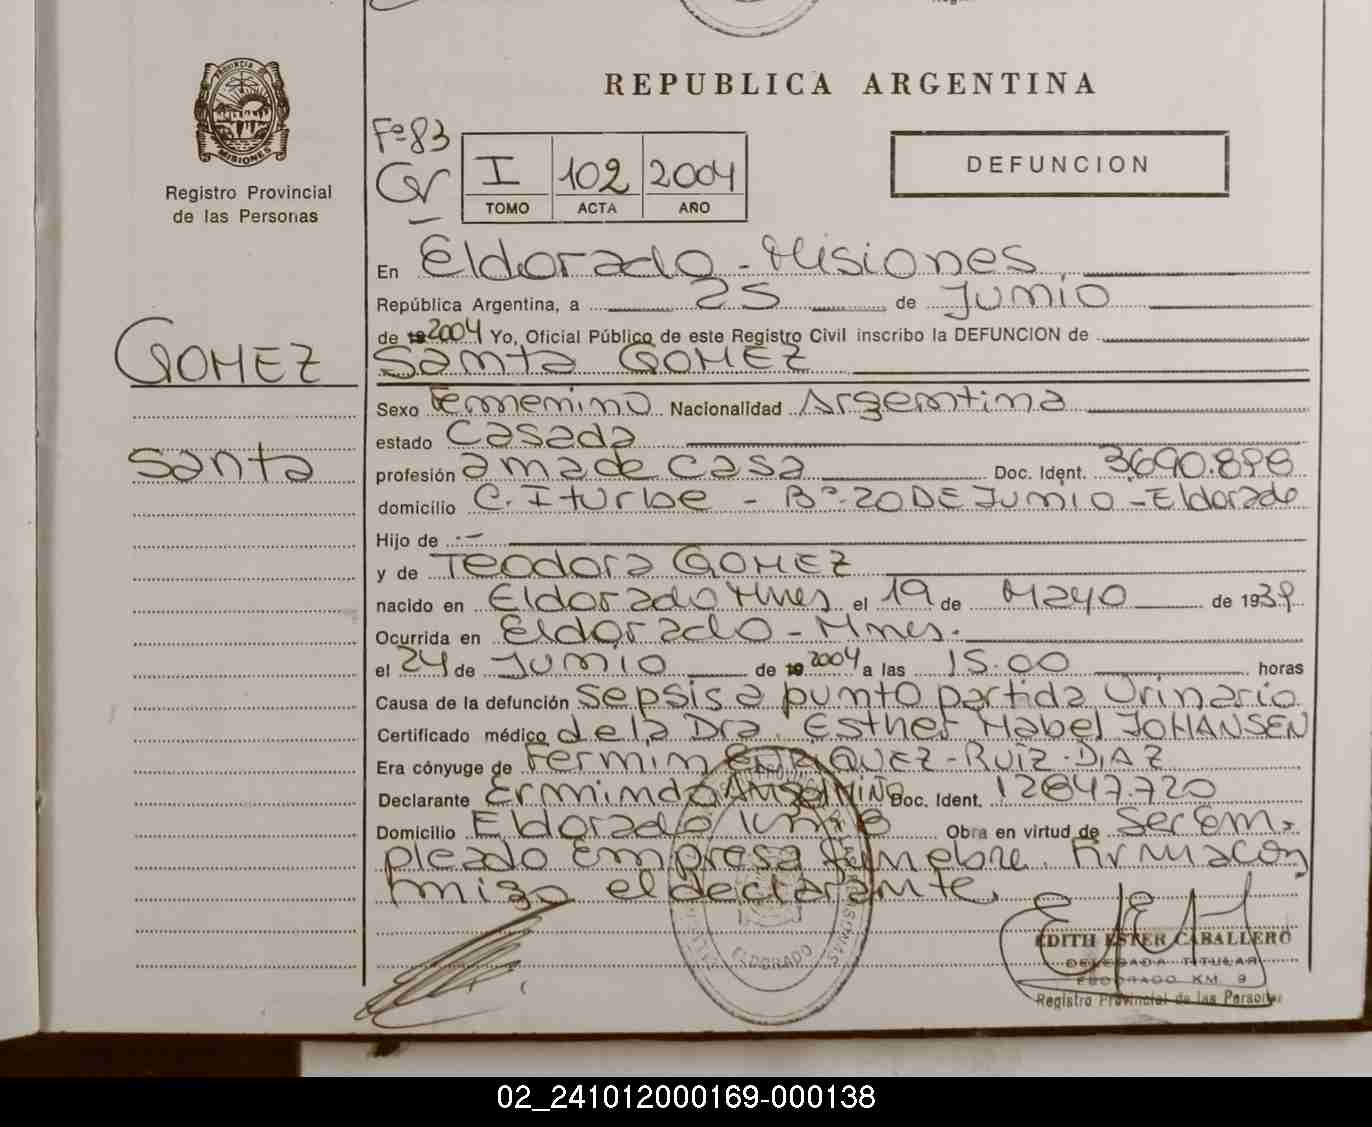 PROVINCIA DE
MISIONES
Registro Provincial
de las Personas
GOMEZ
Santa
REPUBLICA ARGENTINA
Fº 83
I 102 2004
TOMO ACTA AÑO
DEFUNCION
En Eldorado - Misiones
República Argentina, a 25 de Junio
de 2004 Yo, Oficial Público de este Registro Civil inscribo la DEFUNCION de
Santa GOMEZ
Sexo Femenino Nacionalidad Argentina
estado Casada
profesión ama de casa Doc. Ident. 3.690.898
domicilio C. Iturbe - Bº 20 DE Junio - Eldorado
Hijo de -
y de Teodora GOMEZ
nacido en Eldorado Mnes el 19 de Mayo de 1939
Ocurrida en Eldorado - Mnes.
el 24 de Junio de 2004 a las 15.00 horas
Causa de la defunción Sepsis a punto partida Urinario
Certificado médico de la Dra. Esther Mabel JOHANSEN
Era cónyuge de Fermin -RUIZ.DIAZ
Declarante Ermindo Doc. Ident. 12847.720
Domicilio Eldorado Obra en virtud de Ser em-
pleado Empresa funebre. Firmacon
migo el declarante.
ELDORADO
EDITH ESTER CABALLERO
DELEGADA TITULAR
ELDORADO KM. 9
Registro Provincial de las Personas
02_241012000169-000138